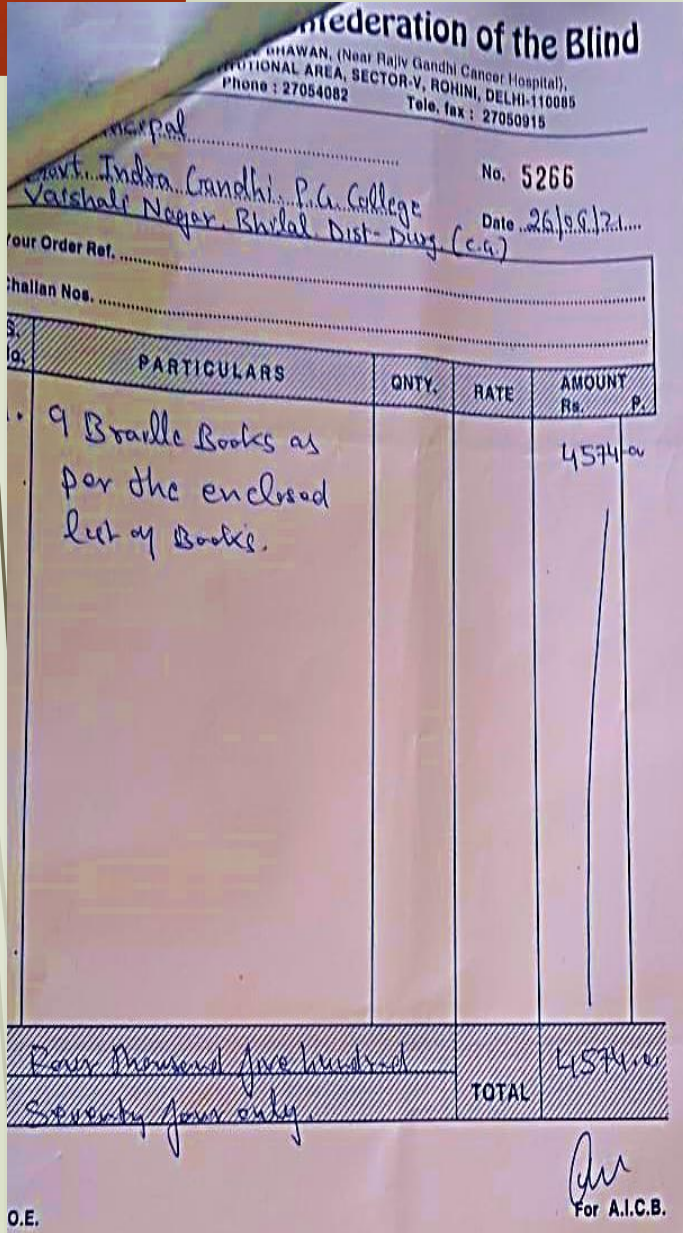 nfederation of the Blind
BHAWAN, (Near Rajiv Gandhi Cancer Hospital),
TUTIONAL AREA, SECTOR-V, ROHINI, DELHI-110085
Phone : 27054082 Tele. fax : 27050915
No. 5266
Govt. Indra Gandhi P.G. College
Vaishali Nagar, Bhilai Dist- Durg. (C.G.)
Date
Your Order Ref.
Challan Nos.
S. No. PARTICULARS QNTY. RATE AMOUNT
Rs. P.
9 Braille Books as 4574
per the enclosed
list of Books.
Four Thousand five hundred
TOTAL 4574
Seventy four only.
For A.I.C.B.
O.E.